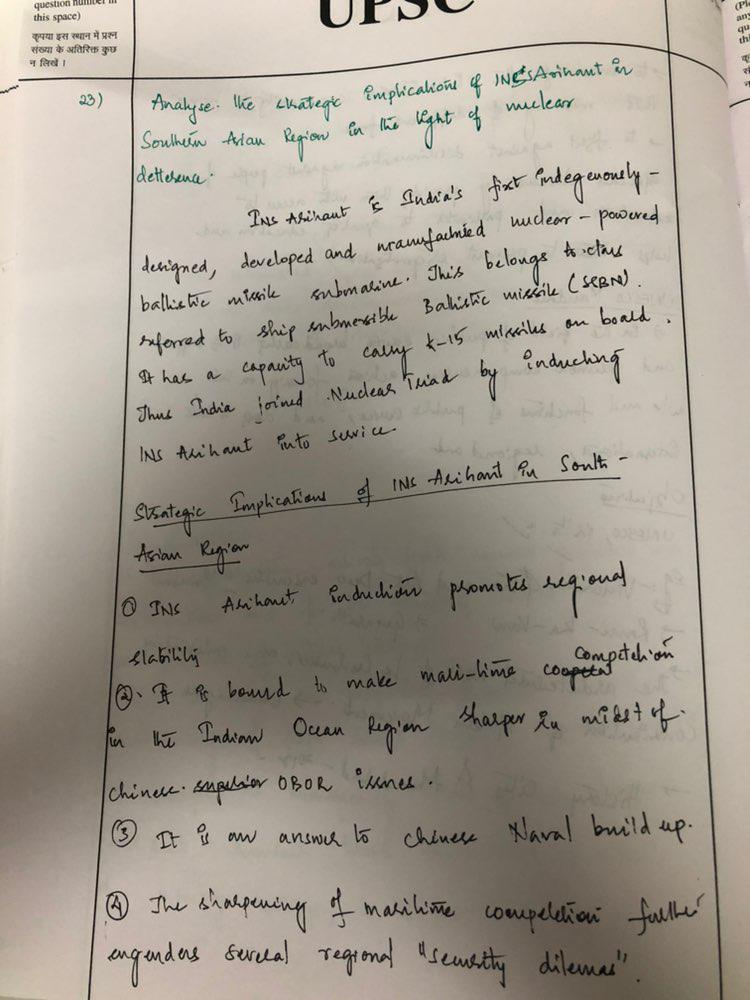 question number in
this space)
कृपया इस स्थान में प्रश्न
संख्या के अतिरिक्त कुछ
न लिखें ।
UPSC
23) Analyse. the strategic implications of INS Arihant in
Southern Asian Region in the light of nuclear
detterence.
INS Arihant is India's first indegenously-
designed, developed and manufactured nuclear-powered
ballistic missile submarine. This belongs to class
referred to ship submersible Ballistic missile (SSBN).
It has a capacity to carry K-15 missiles on board.
Thus India joined Nuclear Triad by inducting
INS Arihant into service.
Strategic Implications of INS Arihant in South-
Asian Region
① INS Arihant induction promotes regional
stability
②. It is bound to make mari-time competetion
in the Indian Ocean Region sharper in midst of.
chinese. superior OBOR issues.
③ It is an answer to chinese Naval build up.
④ The sharpening of maritime competetion further
engenders several regional "security dilemas".